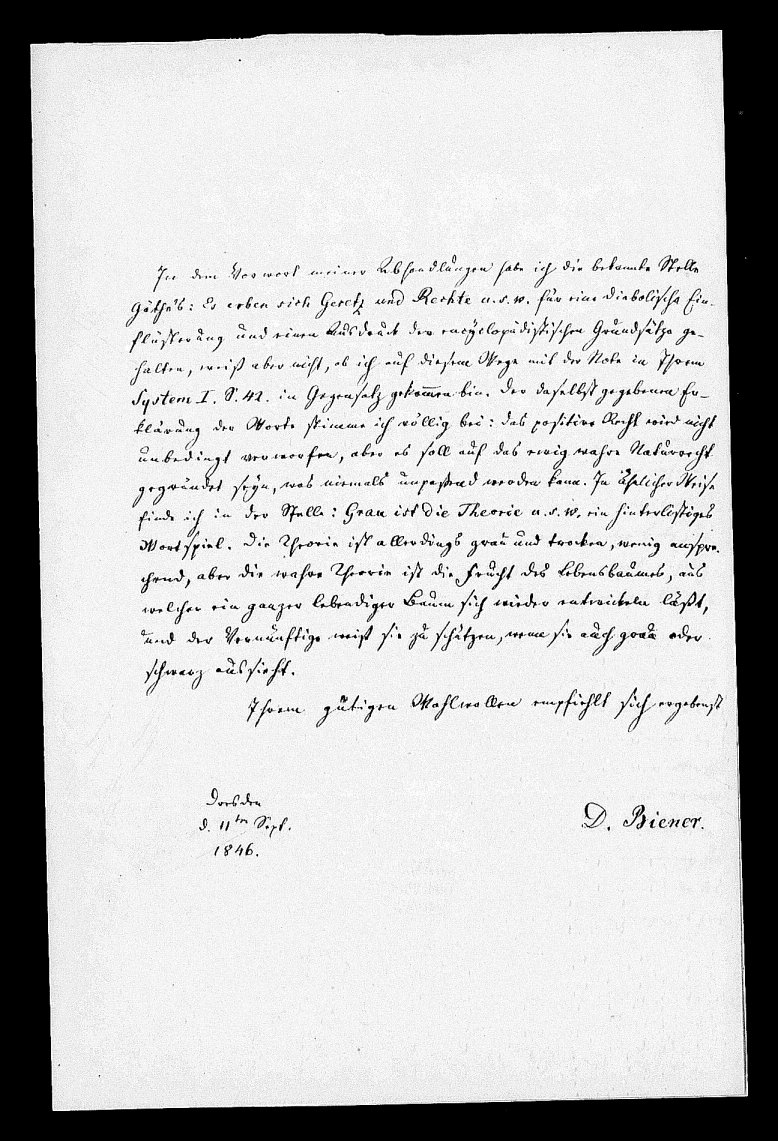 In dem Vorwort meiner Abhandlungen habe ich die bekannte Stelle
Göthe's: Es erben sich Gesetz und Rechte u. s. w. für eine diabolische Ein-
flüsterung und einen Ausdruck der encyclopädistischen Grundsätze ge-
halten, weiß aber nicht, ob ich auf diesem Wege mit der Note in Ihrem
System I. S. 42. in Gegensatz gekommen bin. Der daselbst gegebenen Er-
klärung der Worte stimme ich völlig bei: das positive Recht wird nicht
unbedingt verworfen, aber es soll auf das ewig wahre Naturrecht
gegründet seyn, was niemals unpassend werden kann. In ähnlicher Weise
finde ich in der Stelle: Grau ist die Theorie u. s. w. ein hinterlistiges
Wortspiel. Die Theorie ist allerdings grau und trocken, wenig anspre-
chend, aber die wahre Theorie ist die Frucht des Lebensbaumes, aus
welcher ein ganzer lebendiger Baum sich wieder entwickeln läßt,
und der Vernünftige weiß sie zu schätzen, wenn sie auch grau oder
schwarz aussieht.
Ihrem gütigen Wohlwollen empfiehlt sich ergebenst
Dresden
d. 11ten Sept.
1846.
D. Biener.